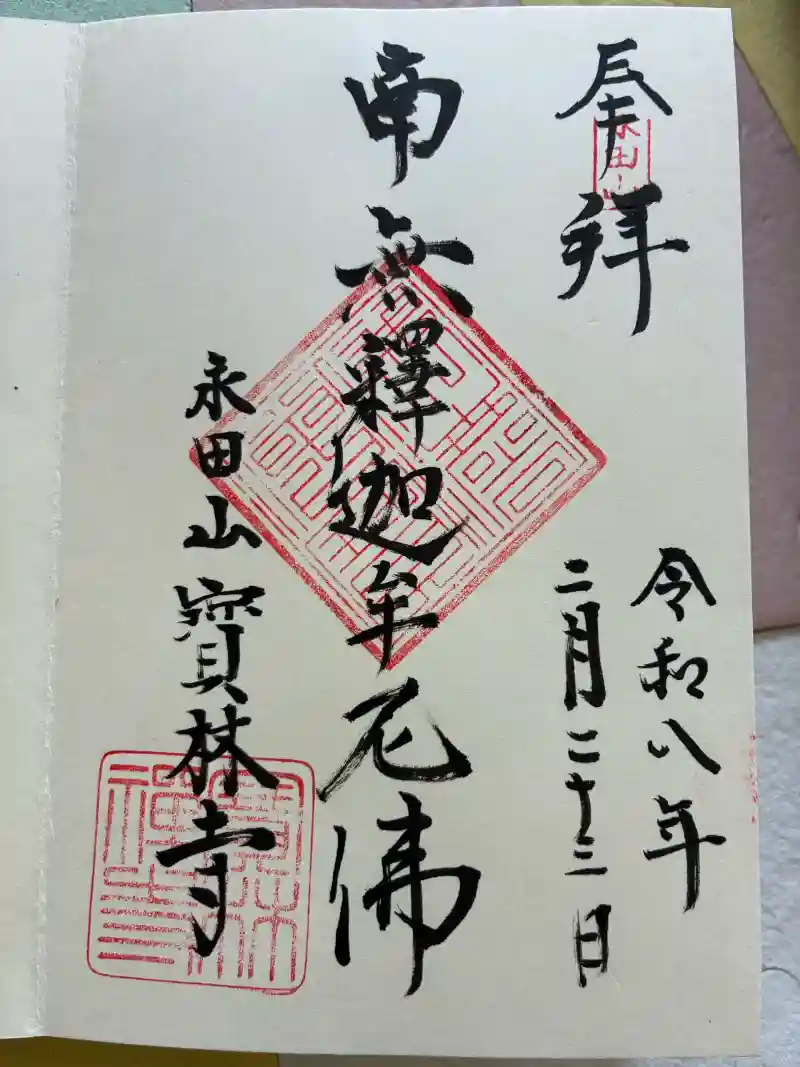 奉拝
永田山
令和八年
二月二十三日
南無釋迦牟尼佛
永田山寳林寺